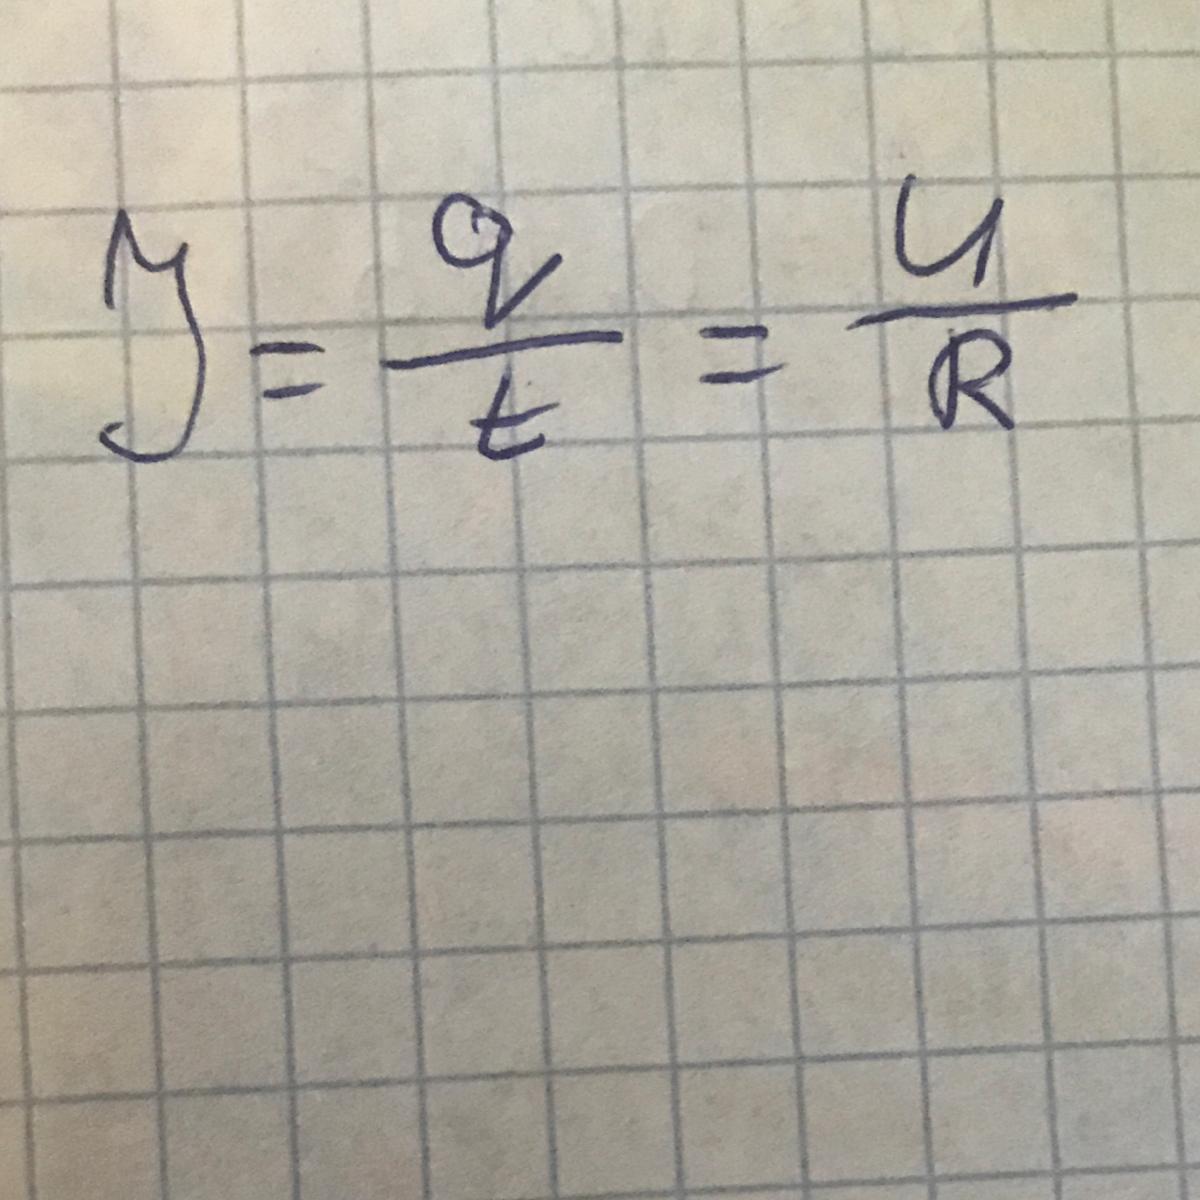 J = q/t = U/R